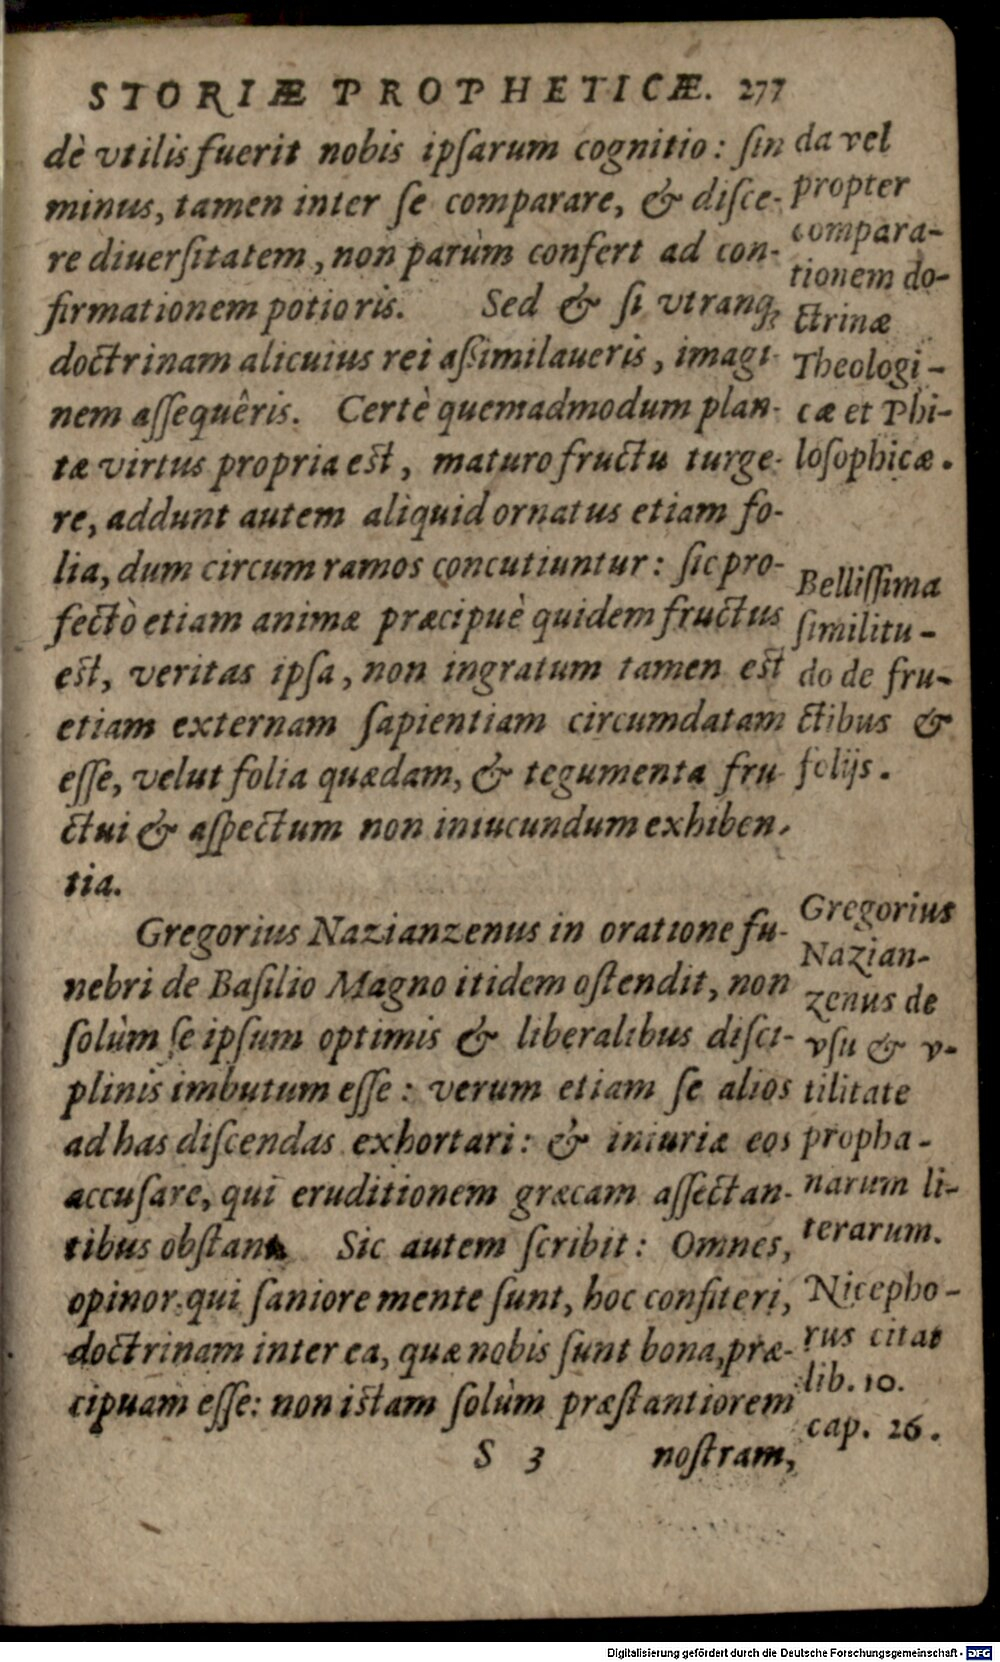 STORIÆ PROPHETICÆ. 277
dè vtilis fuerit nobis ipſarum cognitio: ſin
minus, tamen inter ſe comparare, & diſce-
re diuerſitatem, non parùm confert ad con-
firmationem potioris. Sed & ſi vtranq;
doctrinam alicuius rei aſsimilaueris, imagi-
nem aſſequêris. Certè quemadmodum plan-
tæ virtus propria est, maturo fructu turge-
re, addunt autem aliquid ornatus etiam fo-
lia, dum circum ramos concutiuntur: ſic pro-
fectò etiam animæ præcipuè quidem fructus
est, veritas ipſa, non ingratum tamen est
etiam externam ſapientiam circumdatam
eſſe, velut folia quædam, & tegumenta fru-
ctui & aſpectum non iniucundum exhiben-
tia.
Gregorius Nazianzenus in oratione fu-
nebri de Baſilio Magno itidem oſtendit, non
ſolùm ſe ipſum optimis & liberalibus diſci-
plinis imbutum eſſe: verum etiam ſe alios
ad has diſcendas exhortari: & iniuriæ eos
accuſare, qui eruditionem græcam aſſectan-
tibus obſtant. Sic autem ſcribit: Omnes,
opinor, qui ſaniore mente ſunt, hoc conſiteri,
doctrinam inter ea, quæ nobis ſunt bona, præ-
cipuam eſſe: non istam ſolùm præſtantiorem
S 3 noſtram,
da vel
propter
compara-
tionem do-
ctrinæ
Theologi-
cæ et Phi-
loſophicæ.
Belliſſima
ſimilitu-
do de fru-
ctibus &
folijs.
Gregorius
Nazian-
zenus de
vſu & v-
tilitate
propha-
narum li-
terarum.
Nicepho-
rus citat
lib. 10.
cap. 26.
Digitalisierung gefördert durch die Deutsche Forschungsgemeinschaft - DFG